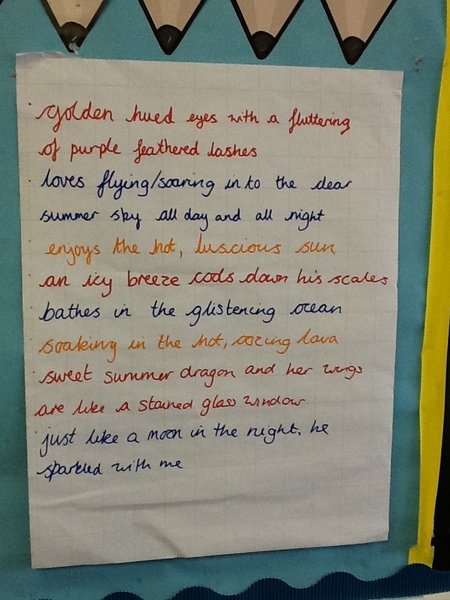 Golden hued eyes with a fluttering
of purple feathered lashes
loves flying/soaring in to the clear
summer sky all day and all night
enjoys the hot, luscious sun
an icy breeze cools down his scales
bathes in the glistening ocean
soaking in the hot, oozing lava
sweet summer dragon and her wings
are like a stained glass window
just like a moon in the night, he
sparkled with me